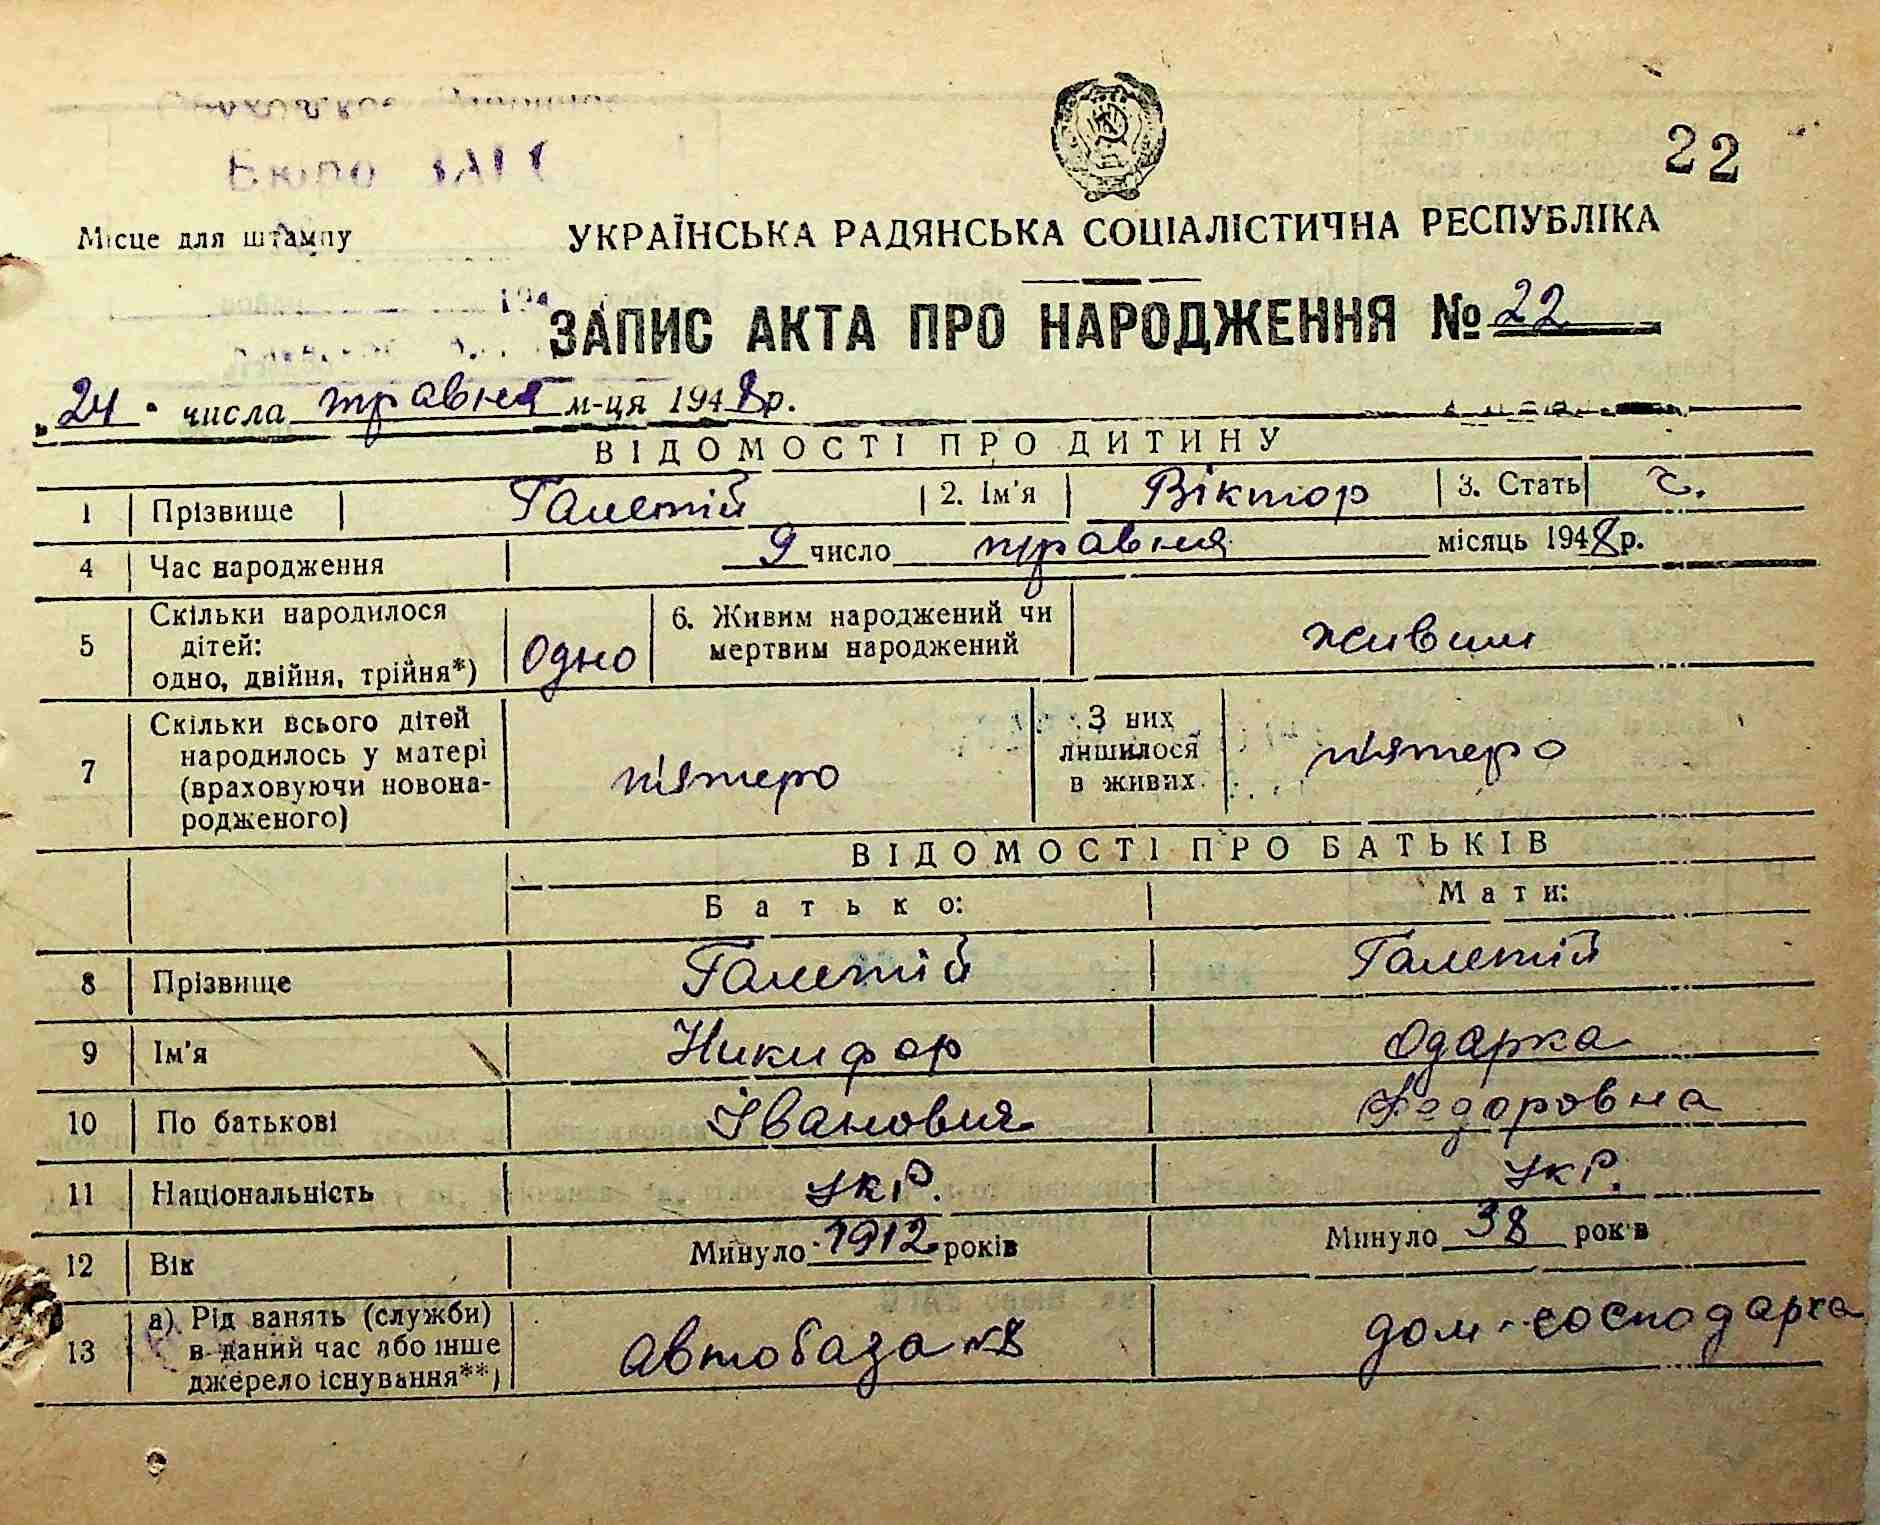 Бюро ЗАГС
22
Місце для штампу
УКРАЇНСЬКА РАДЯНСЬКА СОЦІАЛІСТИЧНА РЕСПУБЛІКА
194
ЗАПИС АКТА ПРО НАРОДЖЕННЯ № 22
„24" числа травня м-ця 1948р.
ВІДОМОСТІ ПРО ДИТИНУ
1 Прізвище Галетій 2. Ім'я Віктор 3. Стать ч.
4 Час народження 9 число травня місяць 1948р.
5 Скільки народилося дітей: одно, двійня, трійня*) Одно 6. Живим народжений чи мертвим народжений живим
7 Скільки всього дітей народилось у матері (враховуючи новонародженого) п'ятеро З них лишилося в живих п'ятеро
ВІДОМОСТІ ПРО БАТЬКІВ
Батько: Мати:
8 Прізвище Галетій Галетій
9 Ім'я Никифор Одарка
10 По батькові Іванович Федоровна
11 Національність укр. укр.
12 Вік Минуло 1912 років Минуло 38 років
13 а) Рід занять (служби) в даний час або інше джерело існування**) Автобаза №8 дом-господарка